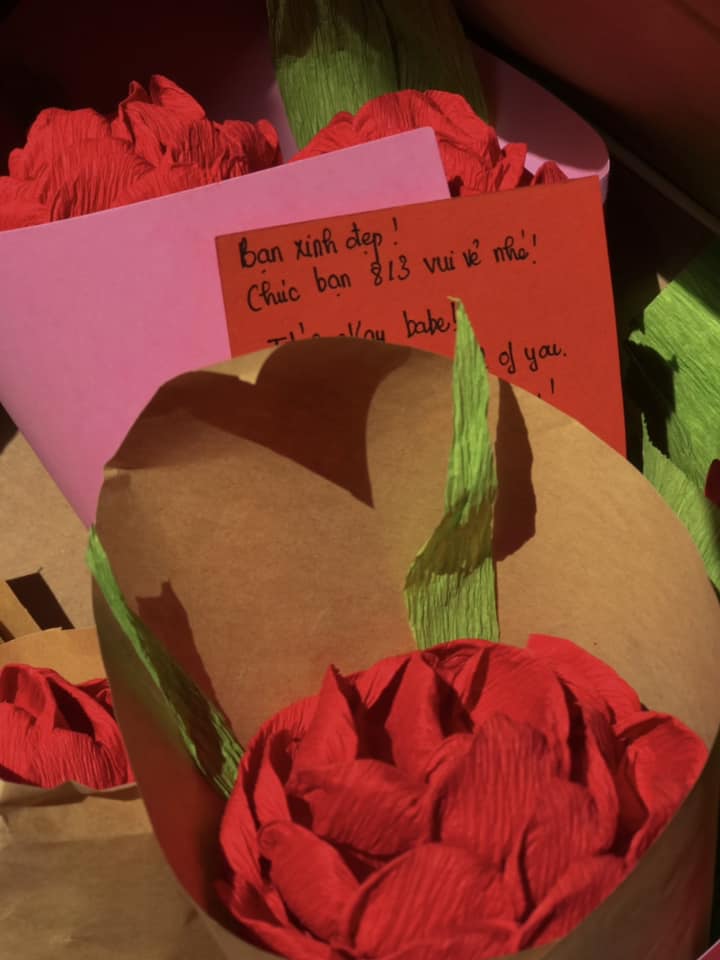 Bạn xinh đẹp!
Chúc bạn 8/3 vui vẻ nhé!
babe!
of you.
!